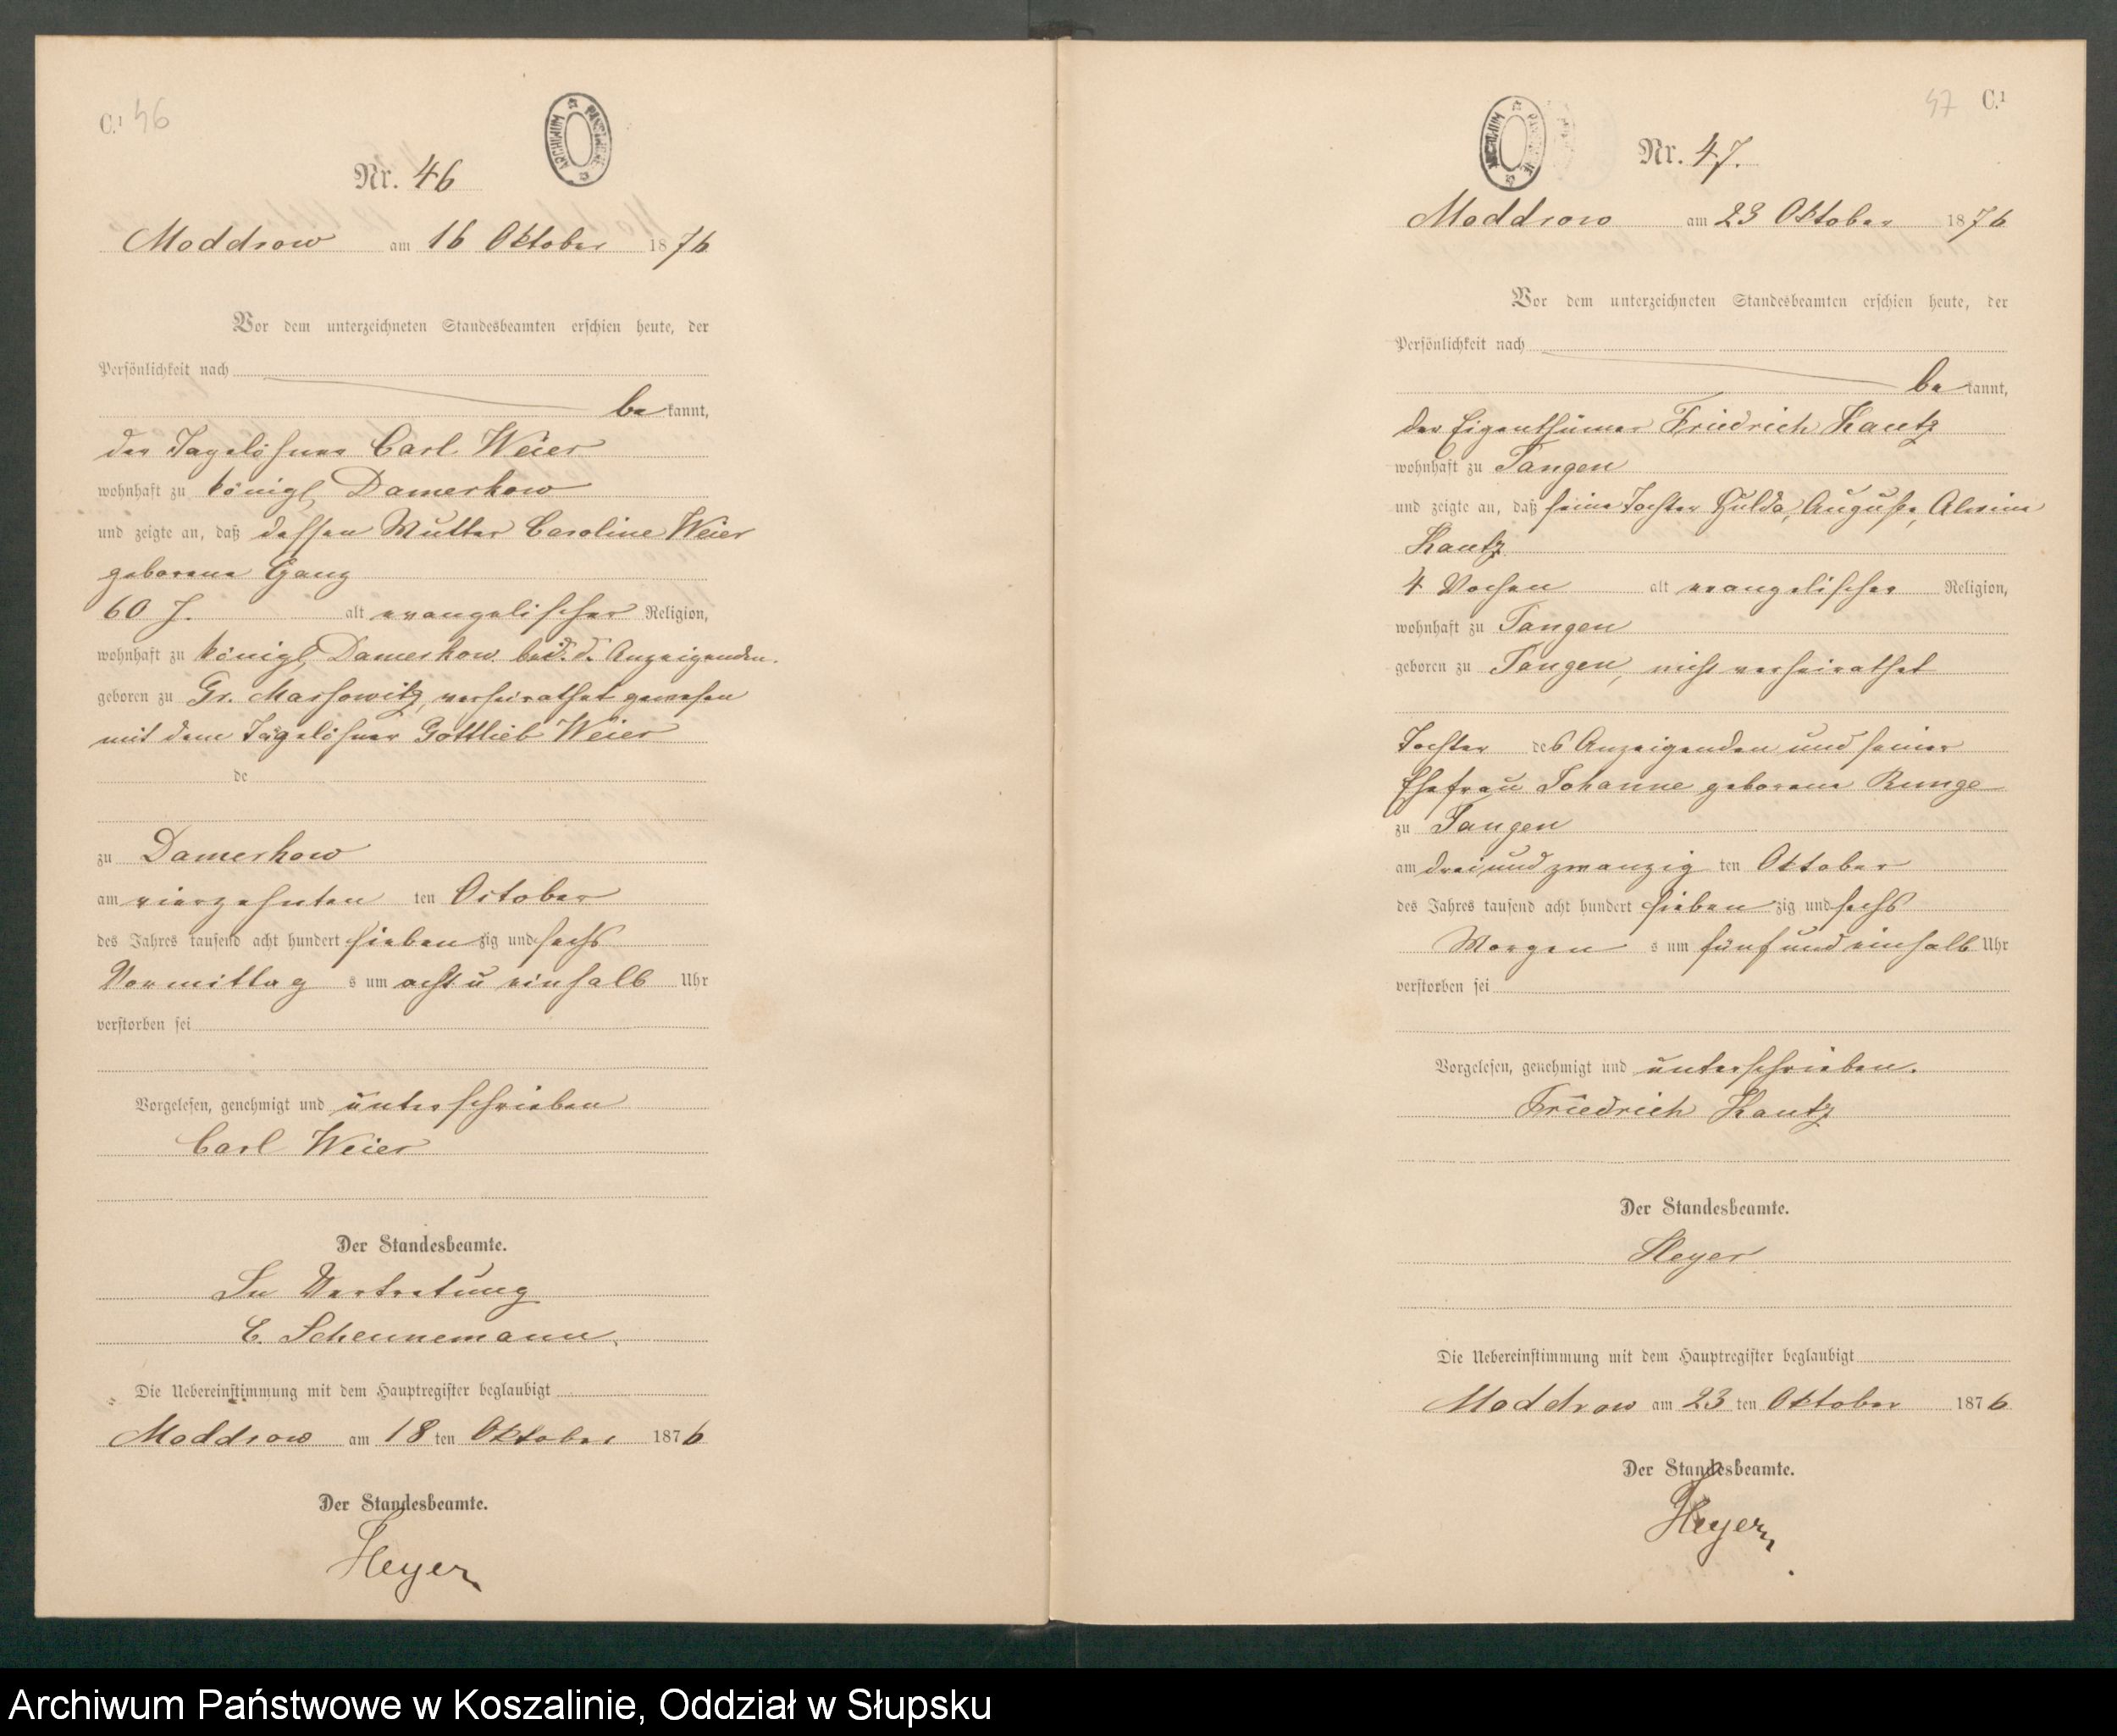 C.¹ 46
ARCHIWUM PAŃSTWOWE
Nr. 46
Moddrow am 16 Oktober 1876
Vor dem unterzeichneten Standesbeamten erschien heute, der
Persönlichkeit nach
bekannt,
der Tagelöhner Carl Weier
wohnhaft zu königl. Damerkow
und zeigte an, daß dessen Mutter Caroline Weier
geborene Ganz
60 J. alt evangelischer Religion,
wohnhaft zu königl. Damerkow bei d. Anzeigenden.
geboren zu Gr. Massowitz, verheirathet gewesen
mit dem Tagelöhner Gottlieb Weier
de
zu Damerkow
am vierzehnten ten October
des Jahres tausend acht hundert siebenzig und sechs
Vormittags um acht u einhalb Uhr
verstorben sei
Vorgelesen, genehmigt und unterschrieben
Carl Weier
Der Standesbeamte.
In Vertretung
C. Scheunemann.
Die Uebereinstimmung mit dem Hauptregister beglaubigt
Moddrow am 18 ten Oktober 1876
Der Standesbeamte.
Heyer
47 C.¹
ARCHIWUM PAŃSTWOWE
Nr. 47.
Moddrow am 23 Oktober 1876
Vor dem unterzeichneten Standesbeamten erschien heute, der
Persönlichkeit nach
bekannt,
der Eigenthümer Friedrich Kautz
wohnhaft zu Tangen
und zeigte an, daß seine Tochter Hulda, Auguste, Alwine
Kautz
4 Wochen alt evangelischer Religion,
wohnhaft zu Tangen
geboren zu Tangen, nicht verheirathet
Tochter des Anzeigenden und seiner
Ehefrau Johanne geborene Runge
zu Tangen
am dreiundzwanzig ten Oktober
des Jahres tausend acht hundert siebenzig und sechs
Morgens um fünf und einhalb Uhr
verstorben sei
Vorgelesen, genehmigt und unterschrieben.
Friedrich Kautz
Der Standesbeamte.
Heyer
Die Uebereinstimmung mit dem Hauptregister beglaubigt
Moddrow am 23 ten Oktober 1876
Der Standesbeamte.
Heyer
Archiwum Państwowe w Koszalinie, Oddział w Słupsku